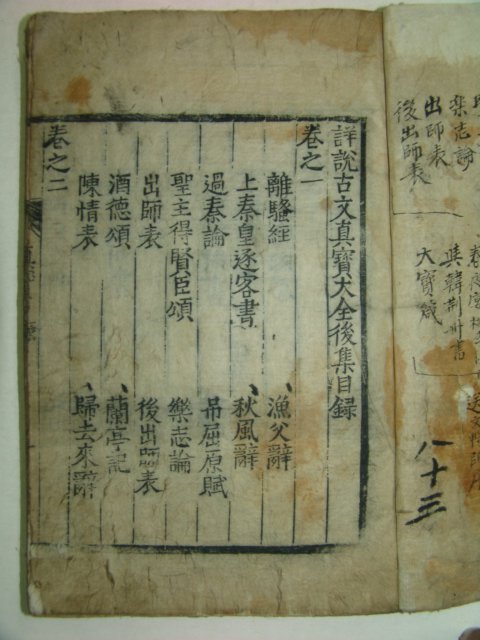 詳說古文真寳大全後集目録
卷之一
離騷經 漁父辭
上秦皇逐客書 秋風辭
過秦論 吊屈原賦
聖主得賢臣頌 樂志論
出師表 後出師表
酒德頌 蘭亭記
陳情表 歸去來辭
卷之二
樂志論
出師表
後出師表
大寳箴
八十三